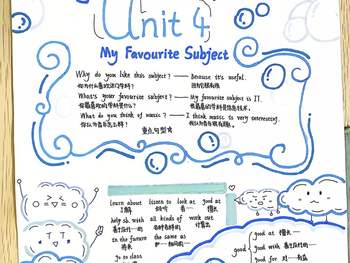 Unit 4
My Favourite Subject
Why do you like this subject? —— Because it's useful.
你为什么喜欢这门学科? 因为它很有用
What's your favourite subject? —— My favourite subject is IT.
你最喜欢的学科是什么? 我最喜欢的学科是信息技术.
What do you think of music? —— I think music is very interesting.
你认为音乐怎么样? 我认为音乐很有趣.
重点句型
learn about listen to look at good at
了解 看 擅长
help sb. with all kinds of work out
各种各样的
in the future the same as
将来
go to class
good
at 擅长
with
for 对